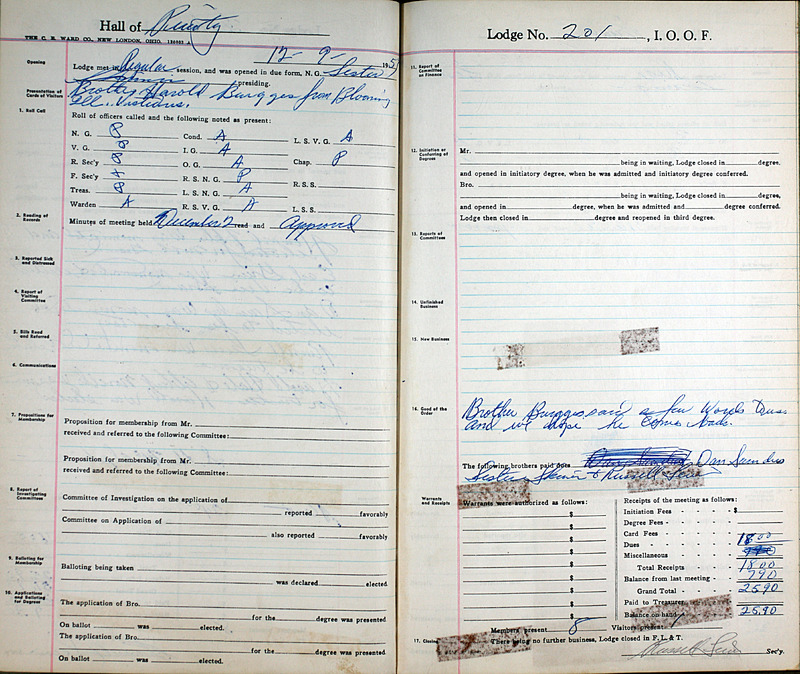 Hall of
THE C. E. WARD CO., NEW LONDON, OHIO.
12-9-
Opening
Lodge met in Regular session, and was opened in due form, N.G. Sister
presiding.
Presentation of Cards of Visitors
Brother Harold Burgges from Blooming
Ill. Visitians.
1. Roll Call
Roll of officers called and the following noted as present:
N. G. P Cond. A L. S. V. G. A
V. G. P I. G. A
R. Sec'y P O. G. A Chap. P
F. Sec'y R. S. N. G. P R. S. S.
Treas. P L. S. N. G. A
Warden A R. S. V. G. A L. S. S.
2. Reading of Records
Minutes of meeting held December 2 read and Approved
3. Reported Sick and Distressed
4. Report of Visiting Committee
5. Bills Read and Referred
6. Communications
7. Propositions for Membership
Proposition for membership from Mr.
received and referred to the following Committee:
Proposition for membership from Mr.
received and referred to the following Committee:
8. Report of Investigating Committee
Committee of Investigation on the application of
reported favorably
Committee on Application of
also reported favorably
9. Balloting for Membership
Balloting being taken
was declared elected.
10. Applications and Balloting for Degrees
The application of Bro.
for the degree was presented
On ballot was elected.
The application of Bro.
for the degree was presented
On ballot was elected.
Lodge No. 201, I. O. O. F.
11. Report of Committee on Finance
12. Initiation or Conferring of Degrees
Mr.
being in waiting, Lodge closed in degree,
and opened in initiatory degree, when he was admitted and initiatory degree conferred.
Bro.
being in waiting, Lodge closed in degree,
and opened in degree, when he was admitted and degree conferred.
Lodge then closed in degree and reopened in third degree.
13. Reports of Committees
14. Unfinished Business
15. New Business
16. Good of the Order
Brother Burgges said a few words
and we hope he comes back.
The following brothers paid dues Dan
Sister & Russell
Warrants and Receipts
Warrants were authorized as follows:
$
$
$
$
$
$
$
$
$
Receipts of the meeting as follows:
Initiation Fees - - $
Degree Fees - - -
Card Fees - - - -
Dues - - - - 18 00
Miscellaneous - -
Total Receipts - - 18 00
Balance from last meeting - 7 90
Grand Total - - 25 90
Paid to Treasurer
Balance on hand 25 90
Members present 8 Visitors present 1
17. Closing
There being no further business, Lodge closed in F., L. & T.
Sec'y.